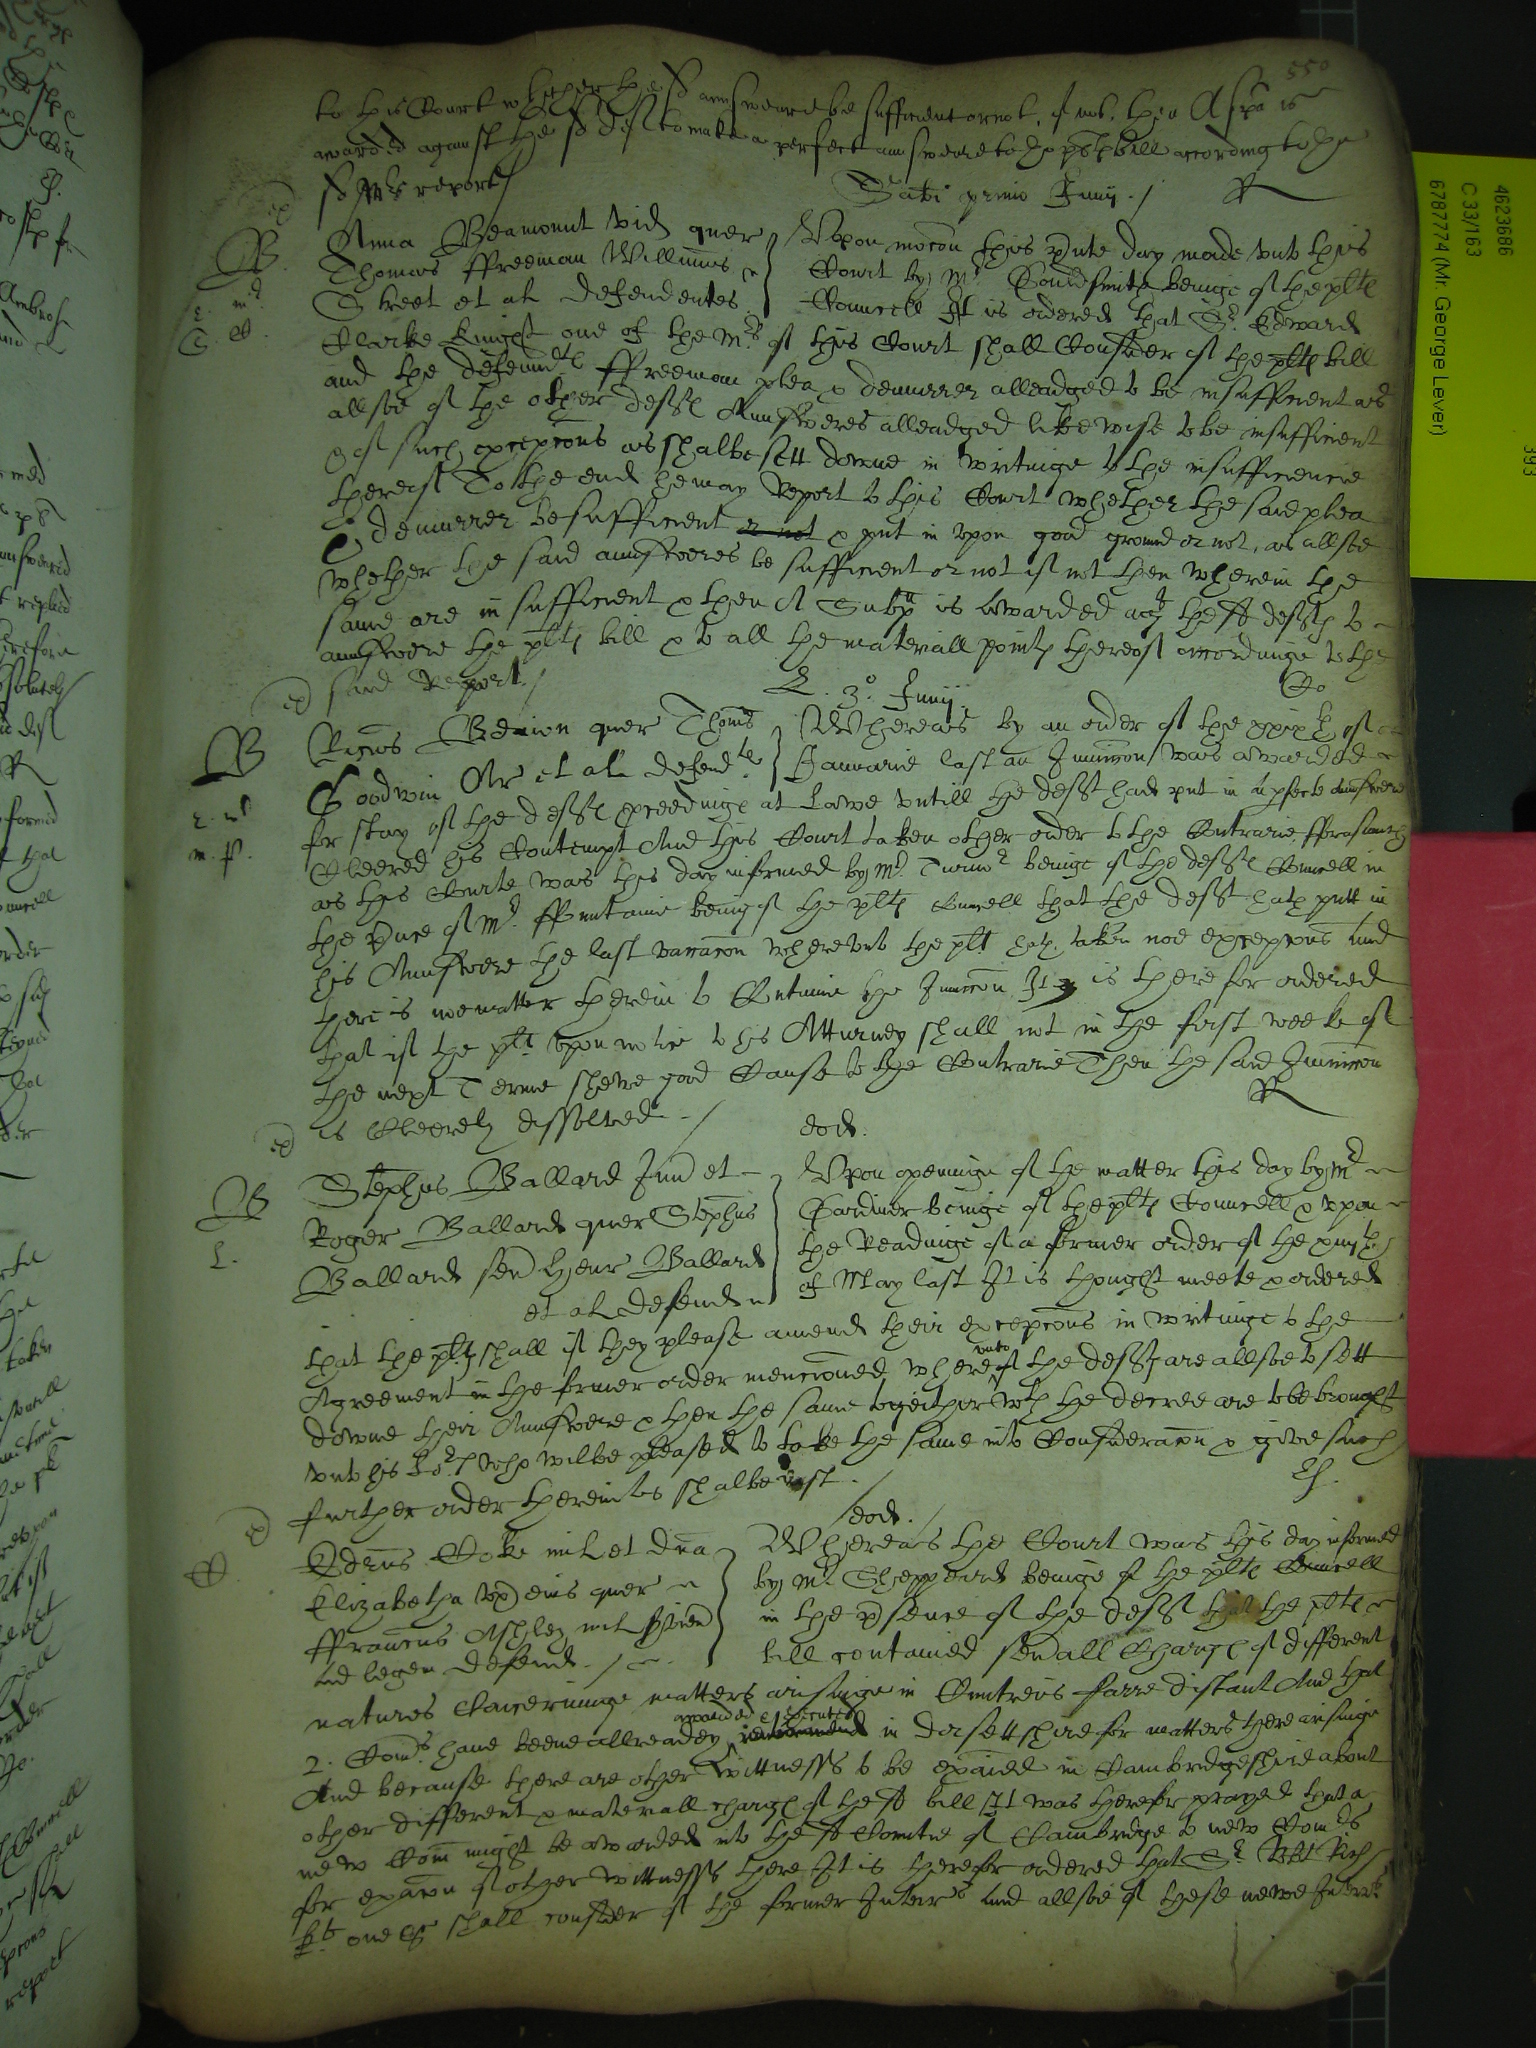 550
to this Court whether the sd answeare be sufficient or not, if not, then A spa is
awarded against the sd deft to make a perfect answeare to the plts bill according to the
sd Mrs report
Sabti primo Junij
R
Anna Beamount vid quer
Thomas ffreeman Willimus
Street et al defendentes
Vpon mocon this pnte day made vnto this
Court by Mr Gouldsmith beinge of the plts
Councell It is ordered that Sr Edward
Clarke knight one of the Mrs of this Court shall Consider of the plts bill
and the defendts ffreeman plea & demurrer alleadged to be insufficient and
allsoe of the other defts Aunsweres alleadged likewise to be insufficient
& of such excepcons as shalbe sett downe in writinge to the insufficiencie
thereof To the end he may Report to this Court whether the said plea
& demurrer be sufficient or not & put in vpon good ground or not, as allsoe
whether the said aunsweres be sufficient or not if not then wherein the
same are insufficient & then A Subpa is awarded agt the sd defts to
aunswere the plts bill & to all the materiall points thereof accordinge to the
said Report
L. 3o Junij
Co
B
Ricus Benion quer Thoms
Goodwin Ar et al defendts
Whereas by an order of the xxixth of
Januarie last an Iniuncon was awarded
for stay of the defts proceedinge at Lawe vntill the deft had put in a perfecte Aunswere
Cleered his Contempt And this Court taken other order to the Contrarie fforasmuch
as this Courte was this day informed by Mr Turnor beinge of the defts Councell in
the pnce of Mr ffountaine being of the plts Councell that the deft hath putt in
his Aunswere the last vacacon wherevnto the plt hath taken noe excepcons And
there is noe matter therein to Continue the Iniuncon It is therefor ordered
that if the plt vpon notice to his Atturney shall not in the first weeke of
the next Terme shewe good Cause to the Contrarie Then the said Iniuncon
is Cleerely dissolved
R
eod.
B
L.
Stephus Ballard Jun et
Roger Ballard quer Stephus
Ballard sen Henr Ballard
et al defend
Vpon openinge of the matter this day by Mr
Gardiner beinge of the plts Councell & vpon
the Readinge of a former order of the
of May last It is thought meete & ordered
that the plts shall if they please amend their excepcons in writinge to the
Agreement in the former order mencioned whereof vnto the defts are allsoe to sett
downe their Aunswere & then the same togeither wth the decree are to be brought
vnto his Lop who wilbe pleased to take the same into Consideracon & give such
further order therein as shalbe iust
eod.
C
Edrus Coke mil et dna
Elizabetha vx eius quer
ffrancus Ashley mil
ad legem defend
Whereas the Court was this day informed
by Mr Sheppeard beinge of the plts Councell
in the psence of the deft that the plts
bill contained seuall Charges of different
natures Concerninge matters arisinge in Contreis farre distant And that
2. Coms haue beene allreadey awarded & executed in dorsettshire for matters there arisinge
And because there are other wittnesses to be examied in Cambridgeshire about
other different & materiall charges of the sd bill It was therefor prayed that a
new Com might be awarded into the sd Countie of Cambridge to new Coms
for examcon of other wittnesses there It is therefor ordered that Sr Robt Rich
kt one &c shall consider of the former Interrs And allsoe of these newe Interrs
4623686
C 33/163
6787774 (Mr. George Lever)
393